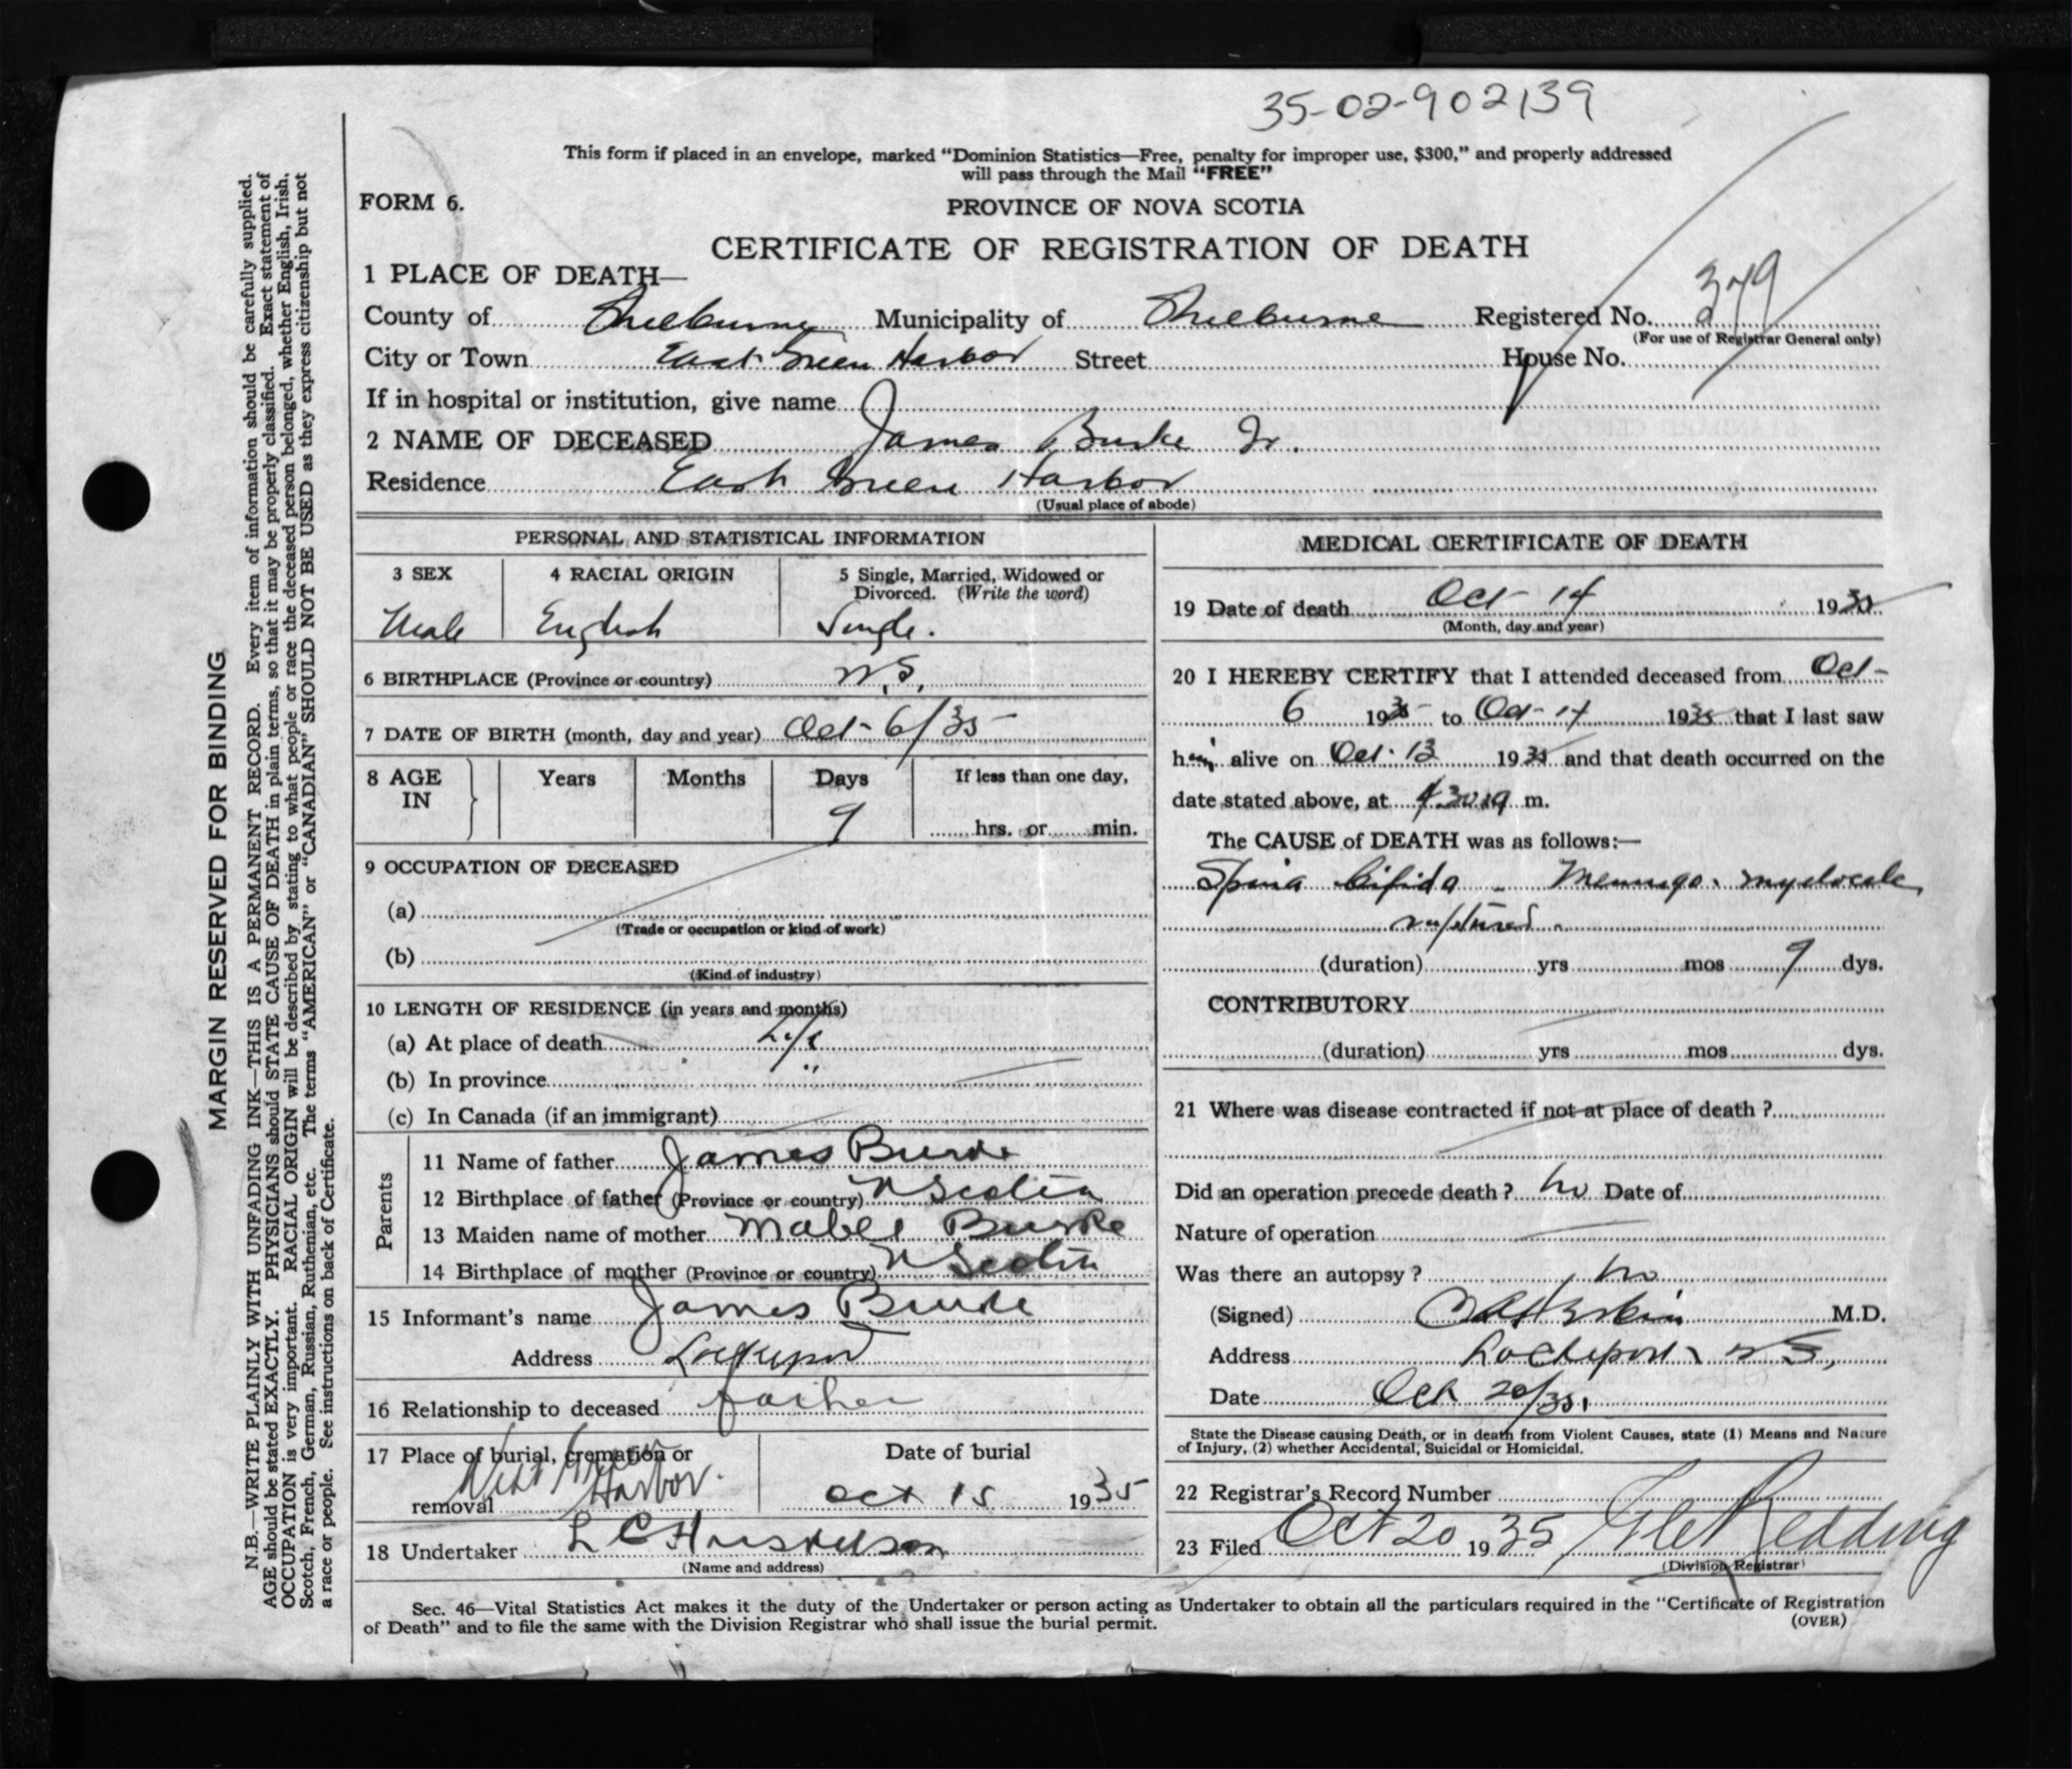 35-02-902139
This form if placed in an envelope, marked “Dominion Statistics—Free, penalty for improper use, $300,” and properly addressed
will pass through the Mail “FREE”
FORM 6.
PROVINCE OF NOVA SCOTIA
CERTIFICATE OF REGISTRATION OF DEATH
1 PLACE OF DEATH—
County of Shelburne Municipality of Shelburne Registered No. 379
(For use of Registrar General only)
City or Town East Green Harbor Street House No.
If in hospital or institution, give name
2 NAME OF DECEASED James Burke Jr.
Residence East Green Harbor
(Usual place of abode)
PERSONAL AND STATISTICAL INFORMATION
3 SEX 4 RACIAL ORIGIN 5 Single, Married, Widowed or
Divorced. (Write the word)
Male English Single.
6 BIRTHPLACE (Province or country) N.S.
7 DATE OF BIRTH (month, day and year) Oct 6/35
8 AGE IN Years Months Days If less than one day,
9 hrs. or min.
9 OCCUPATION OF DECEASED
(a)
(Trade or occupation or kind of work)
(b)
(Kind of industry)
10 LENGTH OF RESIDENCE (in years and months)
(a) At place of death Life
(b) In province "
(c) In Canada (if an immigrant)
Parents
11 Name of father James Burke
12 Birthplace of father (Province or country) N Scotia
13 Maiden name of mother Mabel Burke
14 Birthplace of mother (Province or country) N Scotia
15 Informant's name James Burke
Address Lockeport
16 Relationship to deceased father
17 Place of burial, cremation or Date of burial
removal West Green Harbor. Oct 15 1935
18 Undertaker L C
(Name and address)
MEDICAL CERTIFICATE OF DEATH
19 Date of death Oct 14 1935
(Month, day and year)
20 I HEREBY CERTIFY that I attended deceased from Oct
6 1935 to Oct 14 1935 that I last saw
him alive on Oct 13 1935 and that death occurred on the
date stated above, at 4 30 a m.
The CAUSE of DEATH was as follows:—
Spina bifida - Meningo-myelocele
ruptured.
(duration) yrs mos 9 dys.
CONTRIBUTORY
(duration) yrs mos dys.
21 Where was disease contracted if not at place of death ?
Did an operation precede death ? No Date of
Nature of operation
Was there an autopsy ? No
(Signed) M.D.
Address Lockeport N.S.
Date Oct 20/35.
State the Disease causing Death, or in death from Violent Causes, state (1) Means and Nature
of Injury, (2) whether Accidental, Suicidal or Homicidal.
22 Registrar's Record Number
23 Filed Oct 20 1935 Redding
(Division Registrar)
Sec. 46—Vital Statistics Act makes it the duty of the Undertaker or person acting as Undertaker to obtain all the particulars required in the “Certificate of Registration
of Death” and to file the same with the Division Registrar who shall issue the burial permit.
(OVER)
MARGIN RESERVED FOR BINDING
N.B.—WRITE PLAINLY WITH UNFADING INK—THIS IS A PERMANENT RECORD. Every item of information should be carefully supplied.
AGE should be stated EXACTLY. PHYSICIANS should STATE CAUSE OF DEATH in plain terms, so that it may be properly classified. Exact statement of
OCCUPATION is very important. RACIAL ORIGIN will be described by stating to what people or race the deceased person belonged, whether English, Irish,
Scotch, French, German, Russian, Ruthenian, etc. The terms “AMERICAN” or “CANADIAN” SHOULD NOT BE USED as they express citizenship but not
a race or people. See instructions on back of Certificate.